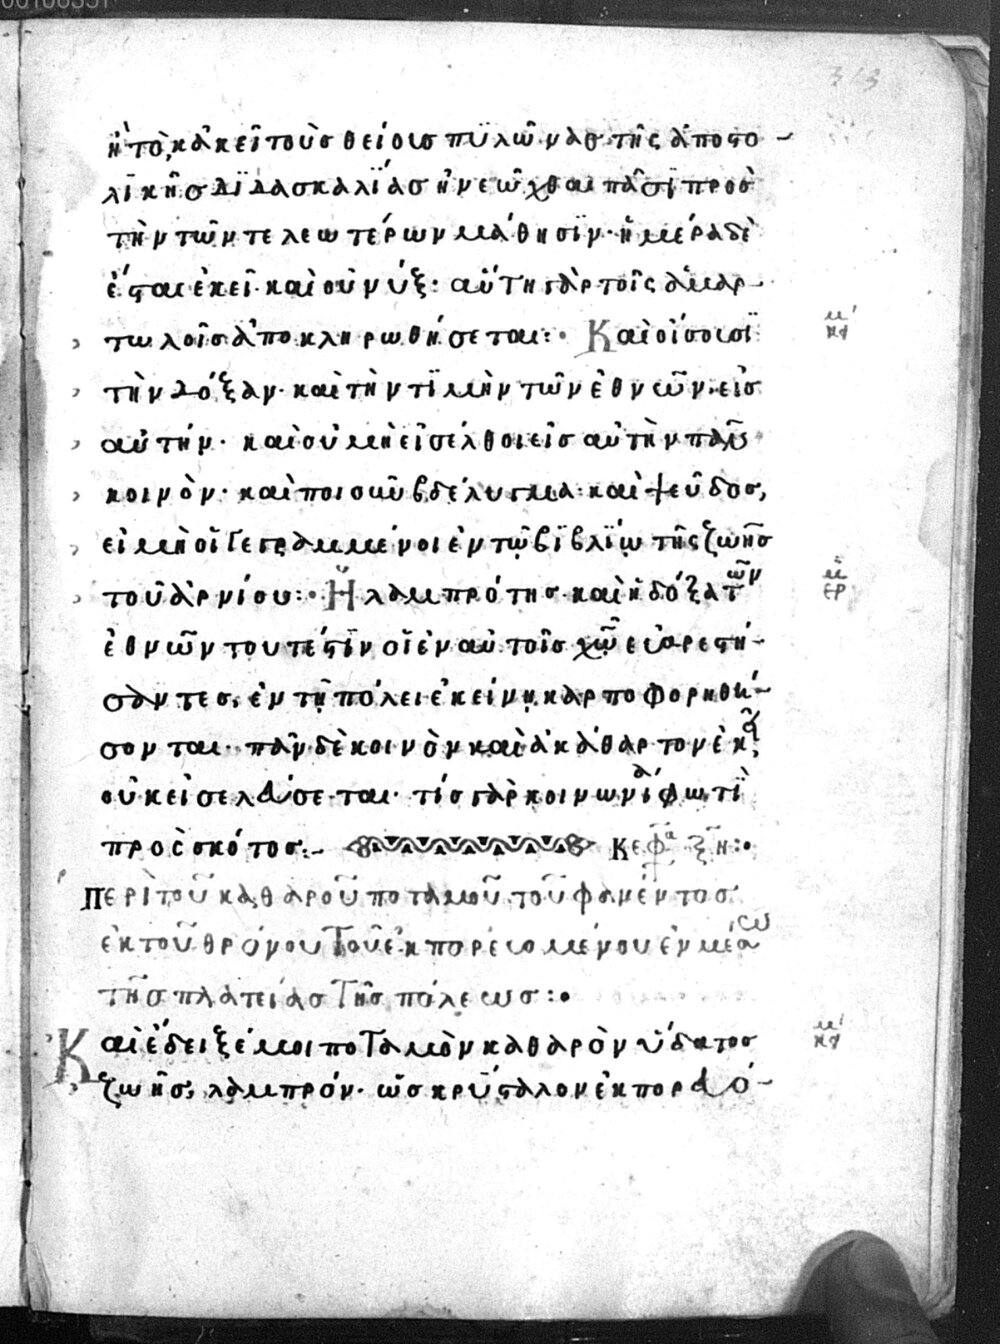 313
ἢ τὸ, κἀκεῖ τοὺσ θείουσ πϋλῶνασ τῆς ἀποστο
λϊκῆσ διδασκαλΐασ ἠνεῶχθαι πᾶσϊ πρὸσ
τὴν τῶν τελεωτέρων μάθησϊν· ἡμέρα δὲ
ἔσται ἐκεῖ· καὶ οὐ νύξ: αὕτη γὰρ τοῖς ἁμαρ
τωλοῖσ ἀποκληρωθήσεται:· Καὶ οἴσουσϊ
κα
τὴν δόξαν· καὶ τὴν τϊμὴν τῶν ἐθνῶν· εἰσ
αὐτήν· καὶ οὐ μὴ εἰσέλθοι εἰσ αὐτὴν πᾶν
κοινὸν· καὶ ποιοῦν βδέλυγμα· καὶ ψεῦδοσ,
εἰ μὴ οἱ γεγραμμένοι ἐν τῷ βϊβλΐῳ τῆς ζωῆσ
τοῦ ἀρνίου:· Ἡ λαμπρότησ· καὶ ἡ δόξα τῶν
ερ
ἐθνῶν τουτέστϊν οἱ ἐν αὐτοῖσ χῶ εὐαρεστή
σαντεσ, ἐν τῇ πόλει ἐκείνῃ καρποφορηθή
σονται· πᾶν δὲ κοινὸν καὶ ἀκάθαρτον ἐκεῖ,
οὐκ εἰσελεύσεται· τίσ γὰρ κοινωνία φωτὶ
πρὸσ σκότοσ: Κεφα ξη:·
Περὶ τοῦ καθαροῦ ποταμοῦ τοῦ φανέντοσ
ἐκ τοῦ θρόνου τοῦ ἐκπορευομένου ἐν μέσω
τῆσ πλατείασ τῆσ πόλεωσ:·
Καὶ ἔδειξέ μοι ποταμὸν καθαρὸν ὕδατοσ
κα
ζωῆσ, λαμπρόν· ὡσ κρύσταλον ἐκπορευό